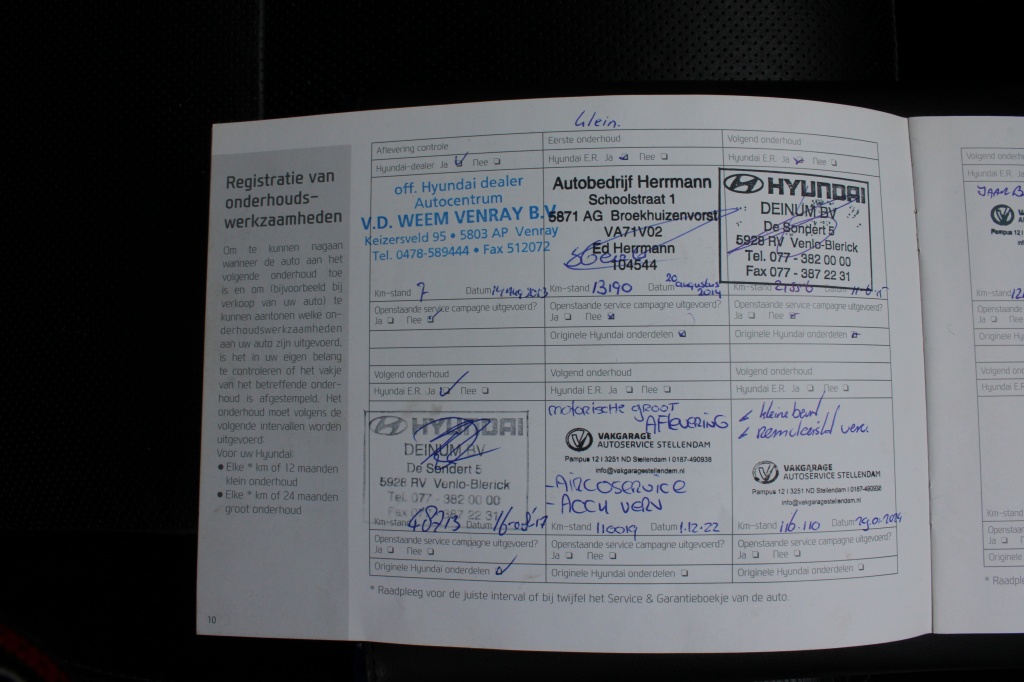 Klein.
Registratie van
onderhouds-
werkzaamheden
Om te kunnen nagaan
wanneer de auto aan het
volgende onderhoud toe
is en om (bijvoorbeeld bij
verkoop van uw auto) te
kunnen aantonen welke on-
derhoudswerkzaamheden
aan uw auto zijn uitgevoerd,
is het in uw eigen belang
te controleren of het vakje
van het betreffende onder-
houd is afgestempeld. Het
onderhoud moet volgens de
volgende intervallen worden
uitgevoerd:
Voor uw Hyundai:
● Elke * km of 12 maanden
klein onderhoud
● Elke * km of 24 maanden
groot onderhoud
10
Aflevering controle
Hyundai-dealer Ja Nee
off. Hyundai dealer
Autocentrum
V.D. WEEM VENRAY B.V.
Keizersveld 95 • 5803 AP Venray
Tel. 0478-589444 • Fax 512072
Km-stand 7 Datum
Openstaande service campagne uitgevoerd?
Ja Nee
Eerste onderhoud
Hyundai E.R. Ja Nee
Autobedrijf Herrmann
Schoolstraat 1
5871 AG Broekhuizenvorst
VA71V02
Ed Herrmann
104544
Km-stand 13190 Datum 20 augustus 2014
Openstaande service campagne uitgevoerd?
Ja Nee
Originele Hyundai onderdelen
Volgend onderhoud
Hyundai E.R. Ja Nee
HYUNDAI
DEINUM BV
De Sondert 5
5928 RV Venlo-Blerick
Tel. 077 - 382 00 00
Fax 077 - 387 22 31
Km-stand Datum
Openstaande service campagne uitgevoerd?
Ja Nee
Originele Hyundai onderdelen
Volgend onderhoud
Hyundai E.R. Ja Nee
HYUNDAI
DEINUM BV
De Sondert 5
5928 RV Venlo-Blerick
Tel. 077 - 382 00 00
387 22 31
Km-stand 48713 Datum
Openstaande service campagne uitgevoerd?
Ja Nee
Originele Hyundai onderdelen
Volgend onderhoud
Hyundai E.R. Ja Nee
motorische groot
AFLEVERING
VAKGARAGE
AUTOSERVICE STELLENDAM
Pampus 12 I 3251 ND Stellendam I 0187-490938
info@vakgaragestellendam.nl
- AIRCOSERVICE
- ACCU VERV
Km-stand 110019 Datum 1.12.22
Openstaande service campagne uitgevoerd?
Ja Nee
Originele Hyundai onderdelen
Volgend onderhoud
Hyundai E.R. Ja Nee
kleine beurt
VAKGARAGE
AUTOSERVICE STELLENDAM
Pampus 12 I 3251 ND Stellendam I 0187-490938
info@vakgaragestellendam.nl
Km-stand 116.110 Datum 29.01.2024
Openstaande service campagne uitgevoerd?
Ja Nee
Originele Hyundai onderdelen
* Raadpleeg voor de juiste interval of bij twijfel het Service & Garantieboekje van de auto.
Volgend onderhoud
Hyundai E.R.
Km-stand
Openstaande
Ja
Originele Hy
Volgend
Hyundai E.R
Km-stand
Openstaande
Ja
Originele
* Raadple